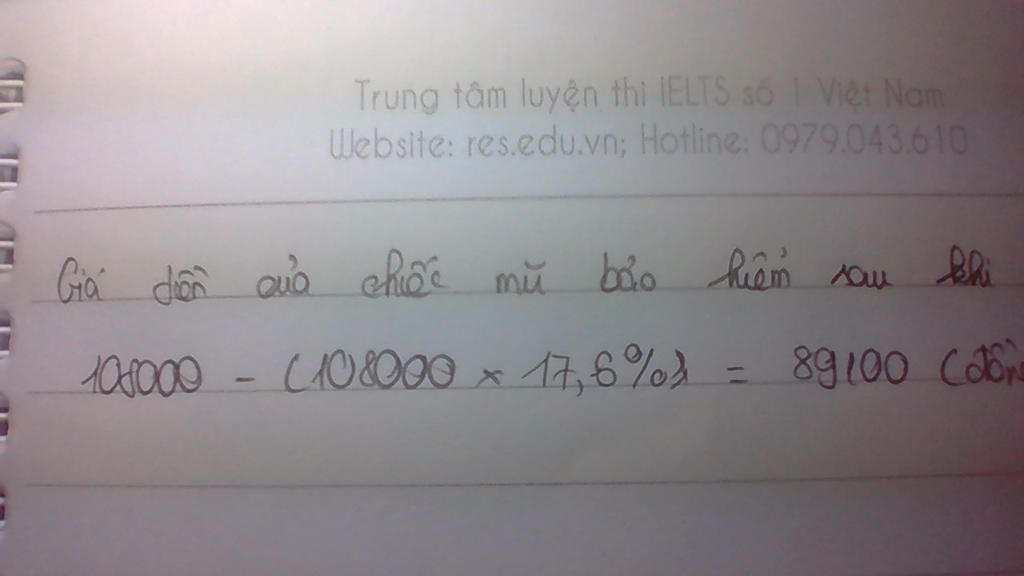 Trung tâm luyện thi IELTS số 1 Việt Nam
Website: res.edu.vn; Hotline: 0979.043.610
Giá tiền của chiếc mũ bảo hiểm sau khi
108000 - (108000 x 17,6%) = 89100 (đồng